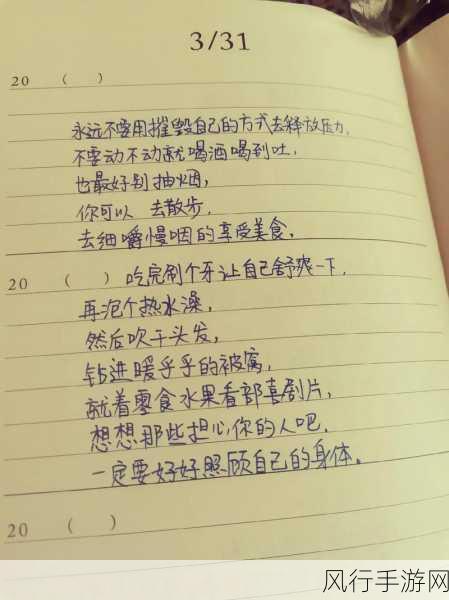 3/31
20 ( )
永远不要用摧毁自己的方式去释放压力,
不要动不动就喝酒喝到吐,
也最好别抽烟,
你可以 去散步,
去细嚼慢咽的享受美食.
20 ( ) 吃完刷个牙让自己舒爽一下,
再泡个热水澡,
然后吹干头发,
钻进暖乎乎的被窝,
就着零食水果看部喜剧片,
想想那些担心你的人吧,
一定要好好照顾自己的身体。
20 ( )
风行手游网